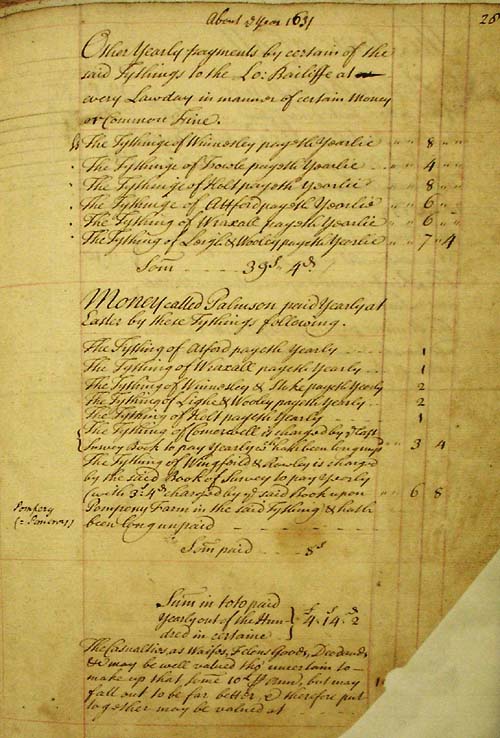 About ye Year 1631
28
Other Yearly payments by certain of the
said Tythings to the Lo: Bailiffe at
every Lawday in manner of certain Money
or Common Fine.
The Tythinge of Winnesley payeth Yearlie " " 8 " "
The Tythinge of Trowle payeth Yearlie " " 4 " "
The Tythinge of Holt payeth Yearlie " " 8 " "
The Tythinge of Attford payeth Yearlie " " 6 " "
The Tything of Wraxall payeth Yearlie " " 6 "
The Tything of Leigh & Wooley payeth Yearlie " " 7 " 4
Som 39s 4d
Money called Palmson paid Yearly at
Easter by these Tythings following.
The Tything of Atford payeth Yearly 1
The Tything of Wraxall payeth Yearly 1
The Tything of Winnesley & Stoke payeth Yearly 2
The Tything of Lighe & Wooley payeth Yearly 2
The Tything of Holt payeth Yearly 1
The Tything of Comerwell is charged by ye last
Survey Book to pay Yearly wch hath been long unpd 3 4
The Tything of Wingfeild & Rowley is charged
by the said Book of Survey to pay Yearly
(with 3s 4d charged by ye said Book upon 6 8
Pomprey
(= Pomeroy)
Pompony Farm in the said Tything & hath
been long unpaid
Som paid 8s
Sum in toto paid
Yearly out of the Hun £4. 14s. 2d
dred in certaine
The Casualties, as Waifes, Felons Goods, Deodands,
&c may be well valued tho' uncertain to
make up that some 10th p Ann, but may
fall out to be far better & therefore put
together may be valued at